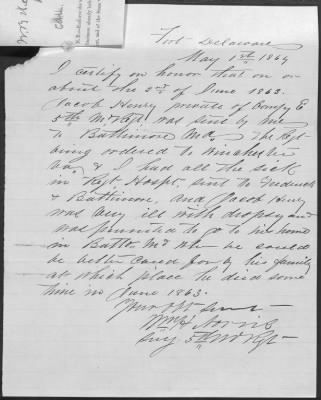 Fort Delaware
May 1st 1864
I certify on honor that on or
about the 2nd of June 1863.
Jacob Henry private of Compy E
5th Md Regt was sent by me
to Baltimore Md. The Regt
being ordered to Winchester
Va. & I had all the sick
in Regt Hospt. sent to Frederick
& Baltimore, and Jacob Henry
was very ill with dropsy and
was permitted to go to his home
in Balto. Md where he could
be better cared for by his family
at which place he died some
time in June 1863.
Your obt Servt
Wm H Norris
Surg 5th Md Regt